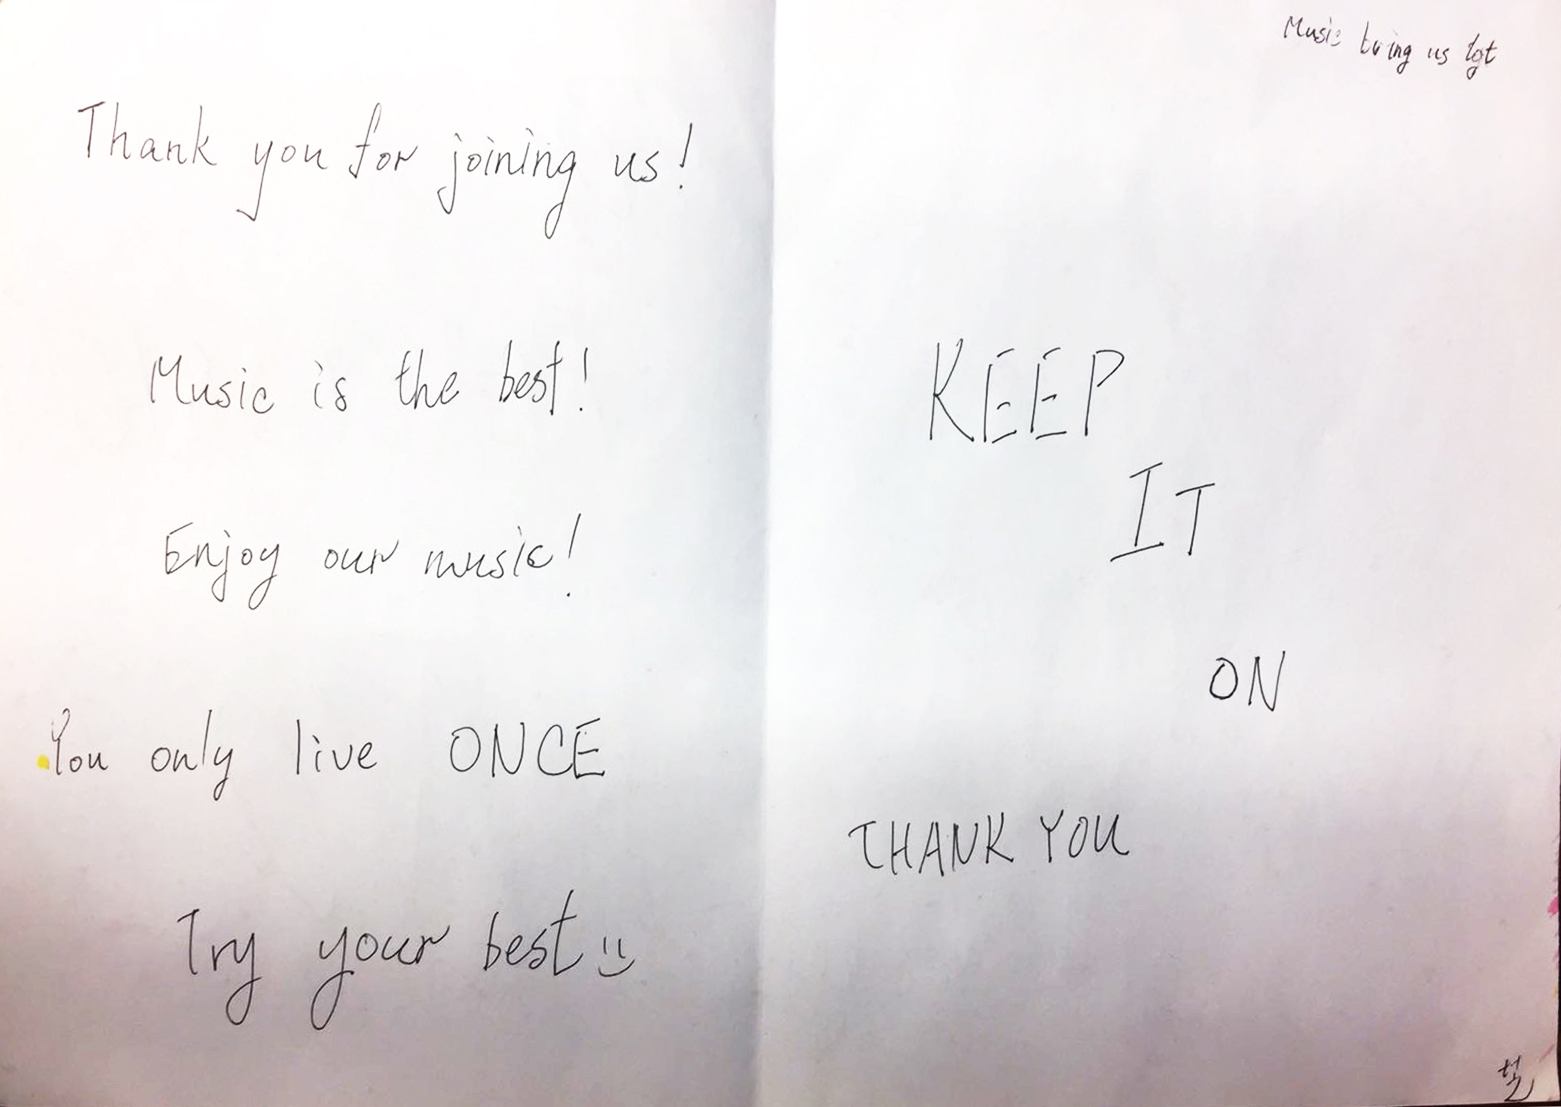 Thank you for joining us!
Music is the best!
Enjoy our music!
You only live ONCE
Try your best
Music bring us tgt
KEEP
IT
ON
THANK YOU